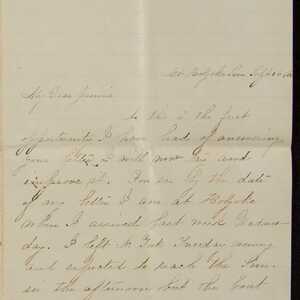 My Dear Jennie
As this is the first
opportunity I have had of answering
your letter I will now try and
improve it. You see by the date
of my letter I am at Holyoke
when I arrived last week Wednes-
day. I left N. York Tuesday evening
and expected to reach the
in the afternoon but the boat